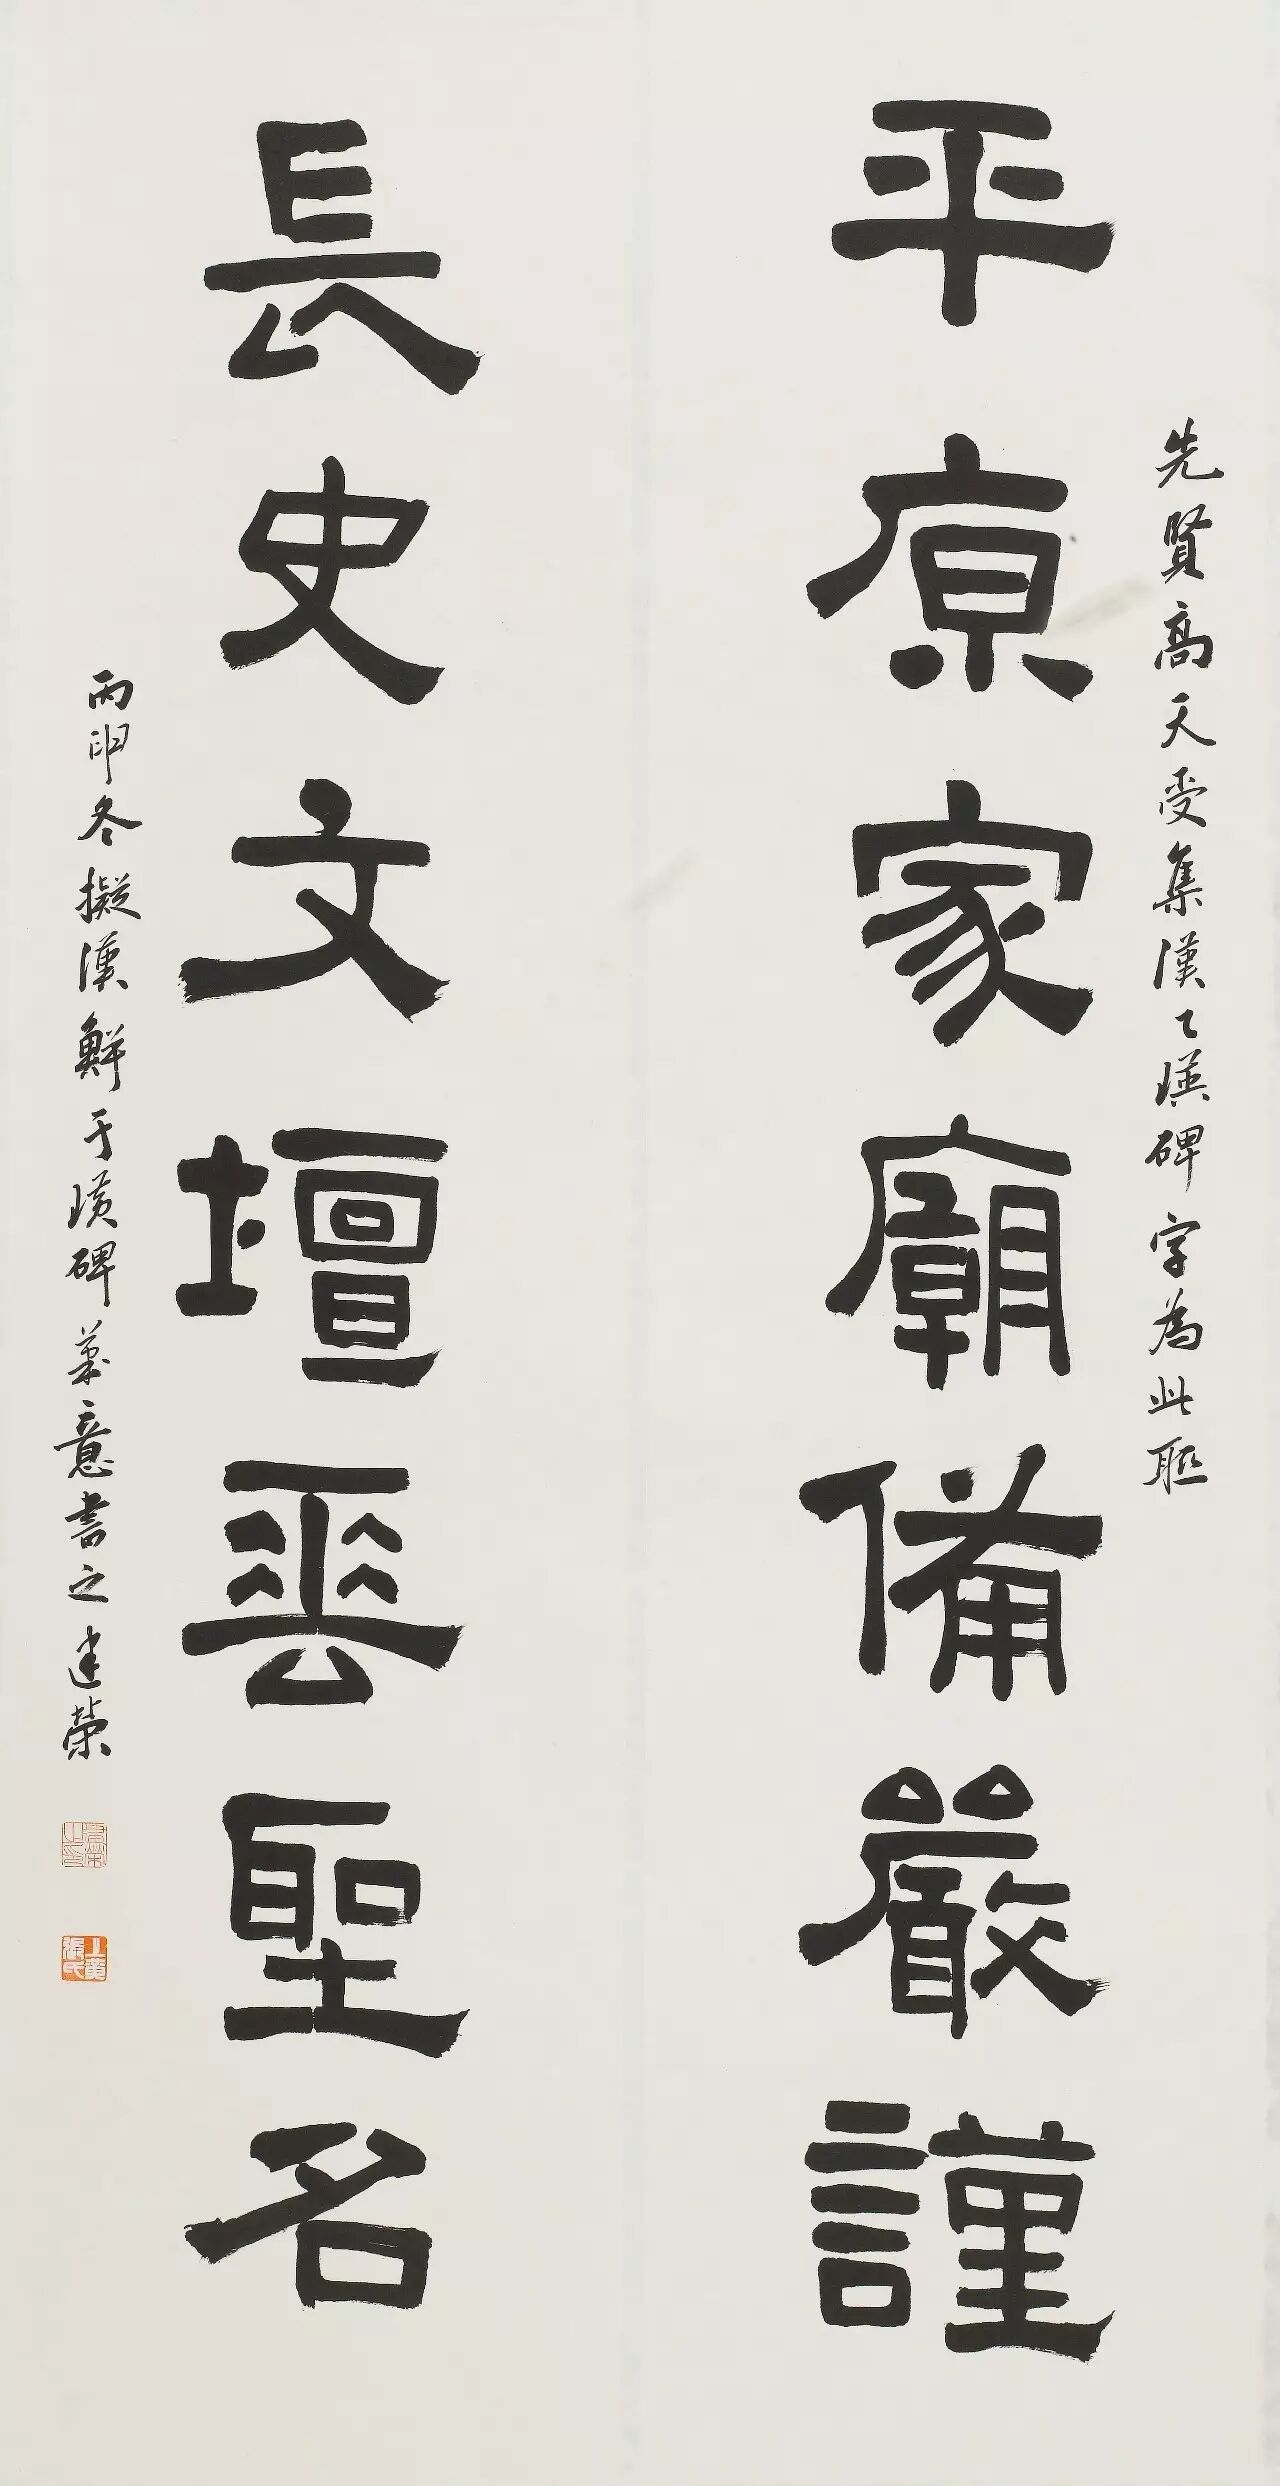 先賢高天受集漢乙瑛碑字為此聯
平原家廟備嚴謹
長史文壇垂聖名
丙申冬擬漢鮮于璜碑筆意書之建榮
建榮之印
張氏